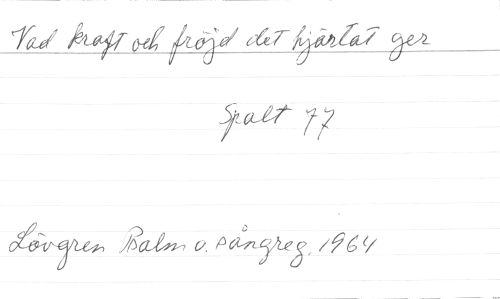 Vad kraft och fröjd det hjärtat ger
Spalt 77
Lövgren Psalm o. sångreg. 1964